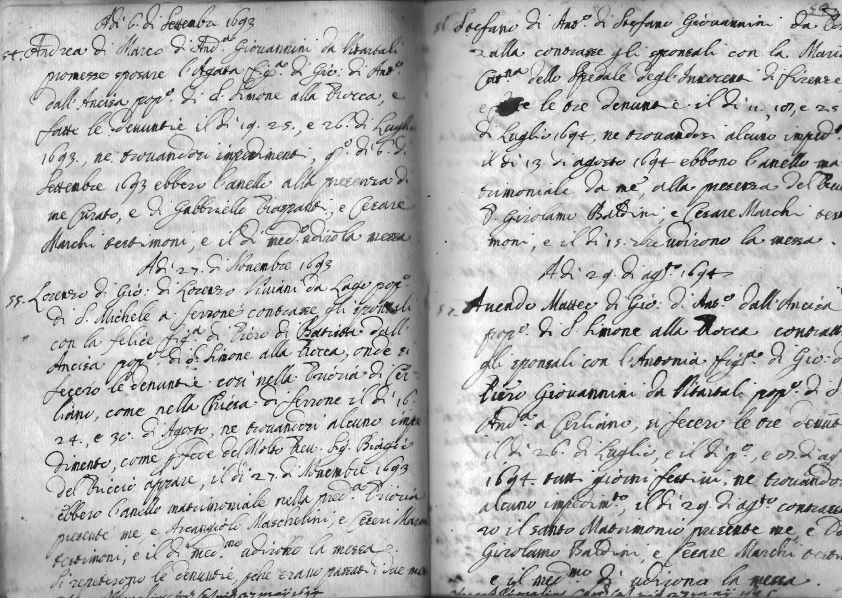 Adi 6. di Settembre 1693
54. Andrea di Marco di And.ª Giovannini da Vitartali
promesse sposare l'Agata fig.ª di Gio: di Ant.º
dall'Ancisa pop.º di S. Simone alla Rocca, e
fatte le denuntie il dì 19. 25., e 26. di Luglio
1693., ne trovandosi impediment, q.º dì 6. di
Settembre 1693 ebbero l'anello alla presenza di
me Curato, e di Gabbriello, e Cesare
Marchi testimoni, e il dì med.º udirò la messa
Adi 27. di Novembre 1693
55. Lorenzo di Gio: di Lorenzo Viviani da Lago pop.º
di S. Michele a ferrone contrasse gli sponsali
con la felice fig.ª di Piero di Batista dall'
Ancisa pop.º di S. Simone alla Rocca, onde si
fecero le denuntie così nella Prioria di Cer-
liano, come nella di ferrone il dì 16.
24. e 30. di Agosto, ne trovandosi alcuno impe
dimento, come p fede del Molto Reu. Sig. Biagio
del Riccio appare, il dì 27. di Novembre 1693
ebbero l'anello matrimoniale nella pred.ª Prioria
presente me e Arcangiolo Maschelini, e
testimoni, e il dì med.mo udirono la messa.
Si repeterono le denuntie, che erano passati i due mesi
56. Stefano di Ant.º di Stefano Giovannini da
ralla contrasse gli sponsali con la Maria
Cat.na dello Spedale degl'Innocenti di firenze
e le tre denuntie il dì 11, 18, e 25
di Luglio 1694, ne trovandosi alcuno imped.º
il dì 13 di agosto 1694 ebbono l'anello ma
trimoniale da me, alla presenza del Reu
D. Girolamo Baldini, e Cesare Marchi testi
moni, e il dì 15. udirono la messa.
Adi 29. di ag.to 1694
57. Auendo Matteo di Gio: di Ant.º dall'Ancisa
pop.º di S. Simone alla Rocca contratt
gli sponsali con l'Antonia fig.ª di Gio: di
Piero Giovannini da Vitartali pop.º di S.
And.ª a Cerliano, si fecero le tre denunt
il dì 26. di Luglio, e il dì p.º, e di ag
1694 tutti giorni festivi, ne trovando
alcuno impedim.to, il dì 29. di ag.to contrasse
ro il santo Matrimonio presente me, e D.
Girolamo Baldini, e Cesare Marchi testi
e il med.mo dì udirono la messa.